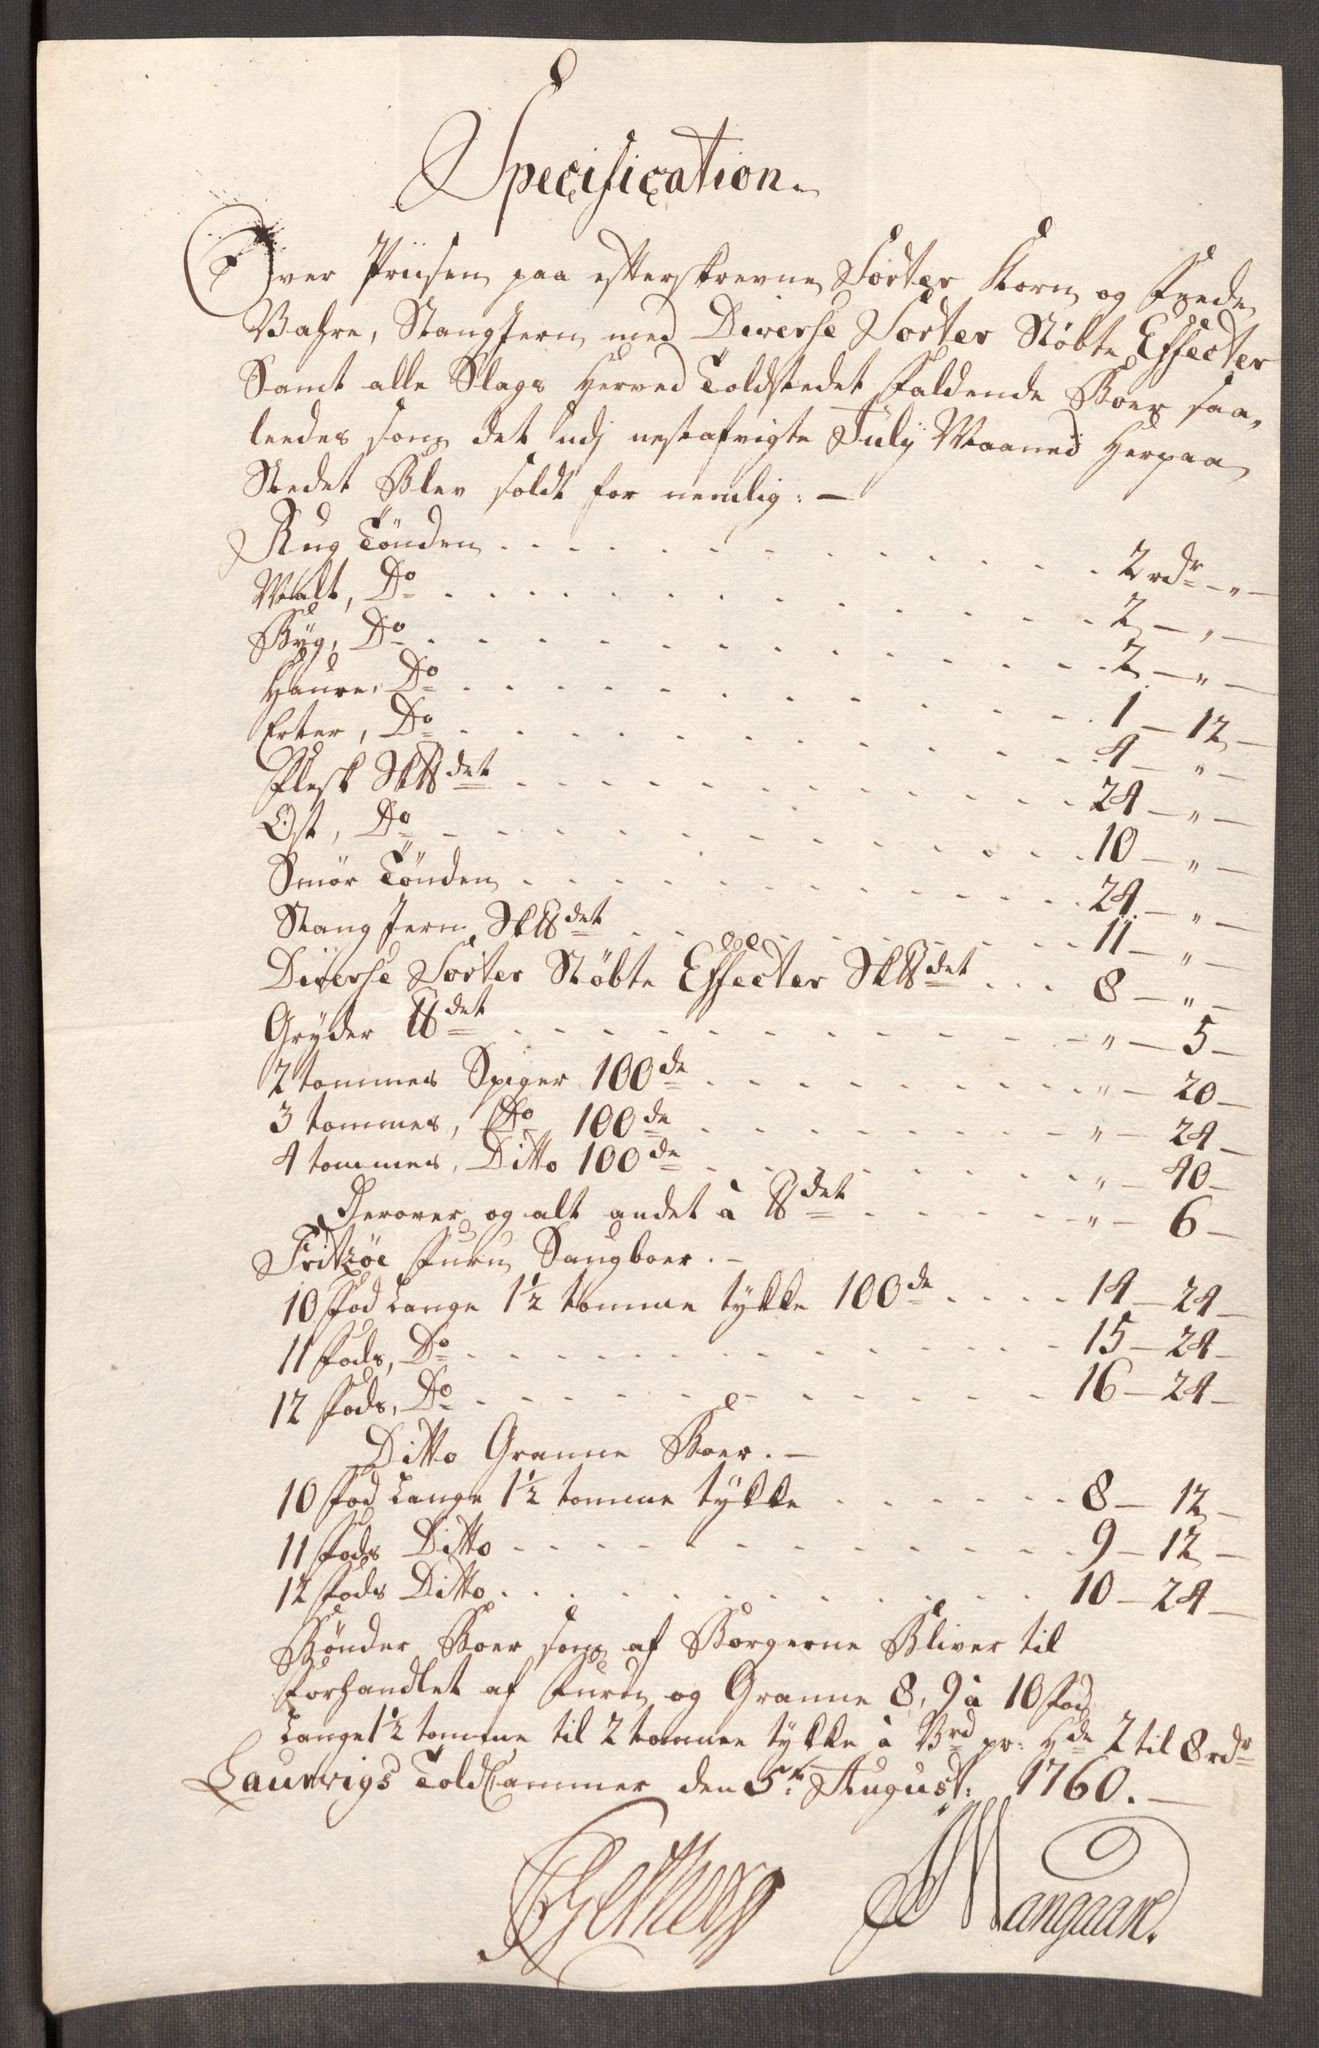 Specification
Over Priisen paa efterskrevne Sorter Korn og Feede
Vahre, Stang Jern med Diverse Sorter Støbte Effecter
Samt alle Slags Herved Toldstedet Faldende Boer saa-
leedes som det udj nestafvigte July Maaned Herpaa
Stedet Blev soldt for nemlig: —
Rug Tønden . . . 2 rdr — " —
Malt, Do . . . 2 — " —
Byg, Do . . . 2 — " —
Haure, Do . . . 1 — 12 —
Erter, Do . . . 4 — " —
Flesk Sk℔det . . . 24 — " —
Ost, Do . . . 10 — " —
Smør Tønden . . . 24 — " —
Stang Jern Sk℔det . . . 11 — " —
Diverse Sorter Støbte Effecter Sk℔det . . . 8 — " —
Gryder ℔det . . . " — 5 —
2 tommes Spiger 100de . . . " — 20 —
3 tommes, Do 100de . . . " — 24 —
4 tommes, Ditto 100de . . . " — 40 —
Derover og alt andet à ℔det . . . " — 6 —
Fritzøe Furu Saugboer. —
10 Fod Lange 1½ tomme tykke 100de . . . 14 — 24 —
11 Fods, Do . . . 15 — 24 —
12 Fods, Do . . . 16 — 24 —
Ditto Granne Boer. —
10 Fod Lange 1½ tomme tykke . . . 8 — 12 —
11 Fods Ditto . . . 9 — 12 —
12 Fods Ditto . . . 10 — 24 —
Bønder Boer som af Borgerne Bliver til
forhandlet af Furu og Granne 8, 9 à 10 Fod
Lange 1½ tomme til 2 tomme tykke à Brd pr: Hde 2 til 8 rdr
Laurwigs ToldCammer den 5te August: 1760. —